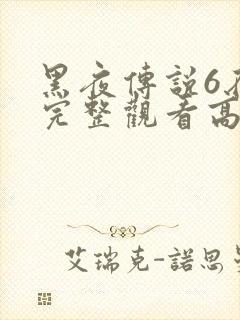 黑夜傳說6
完整觀看高
艾瑞克-諾思